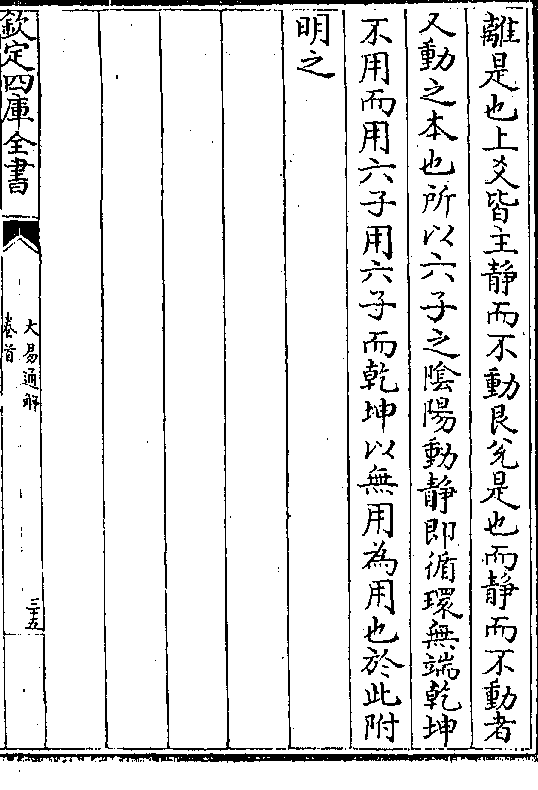 離是也上爻皆主静而不動艮兊是也而静而不動者
又動之本也所以六子之陰陽動静即循環無端乾坤
不用而用六子用六子而乾坤以無用為用也於此附
明之
欽定四庫全書
大易通解
卷首
三十五